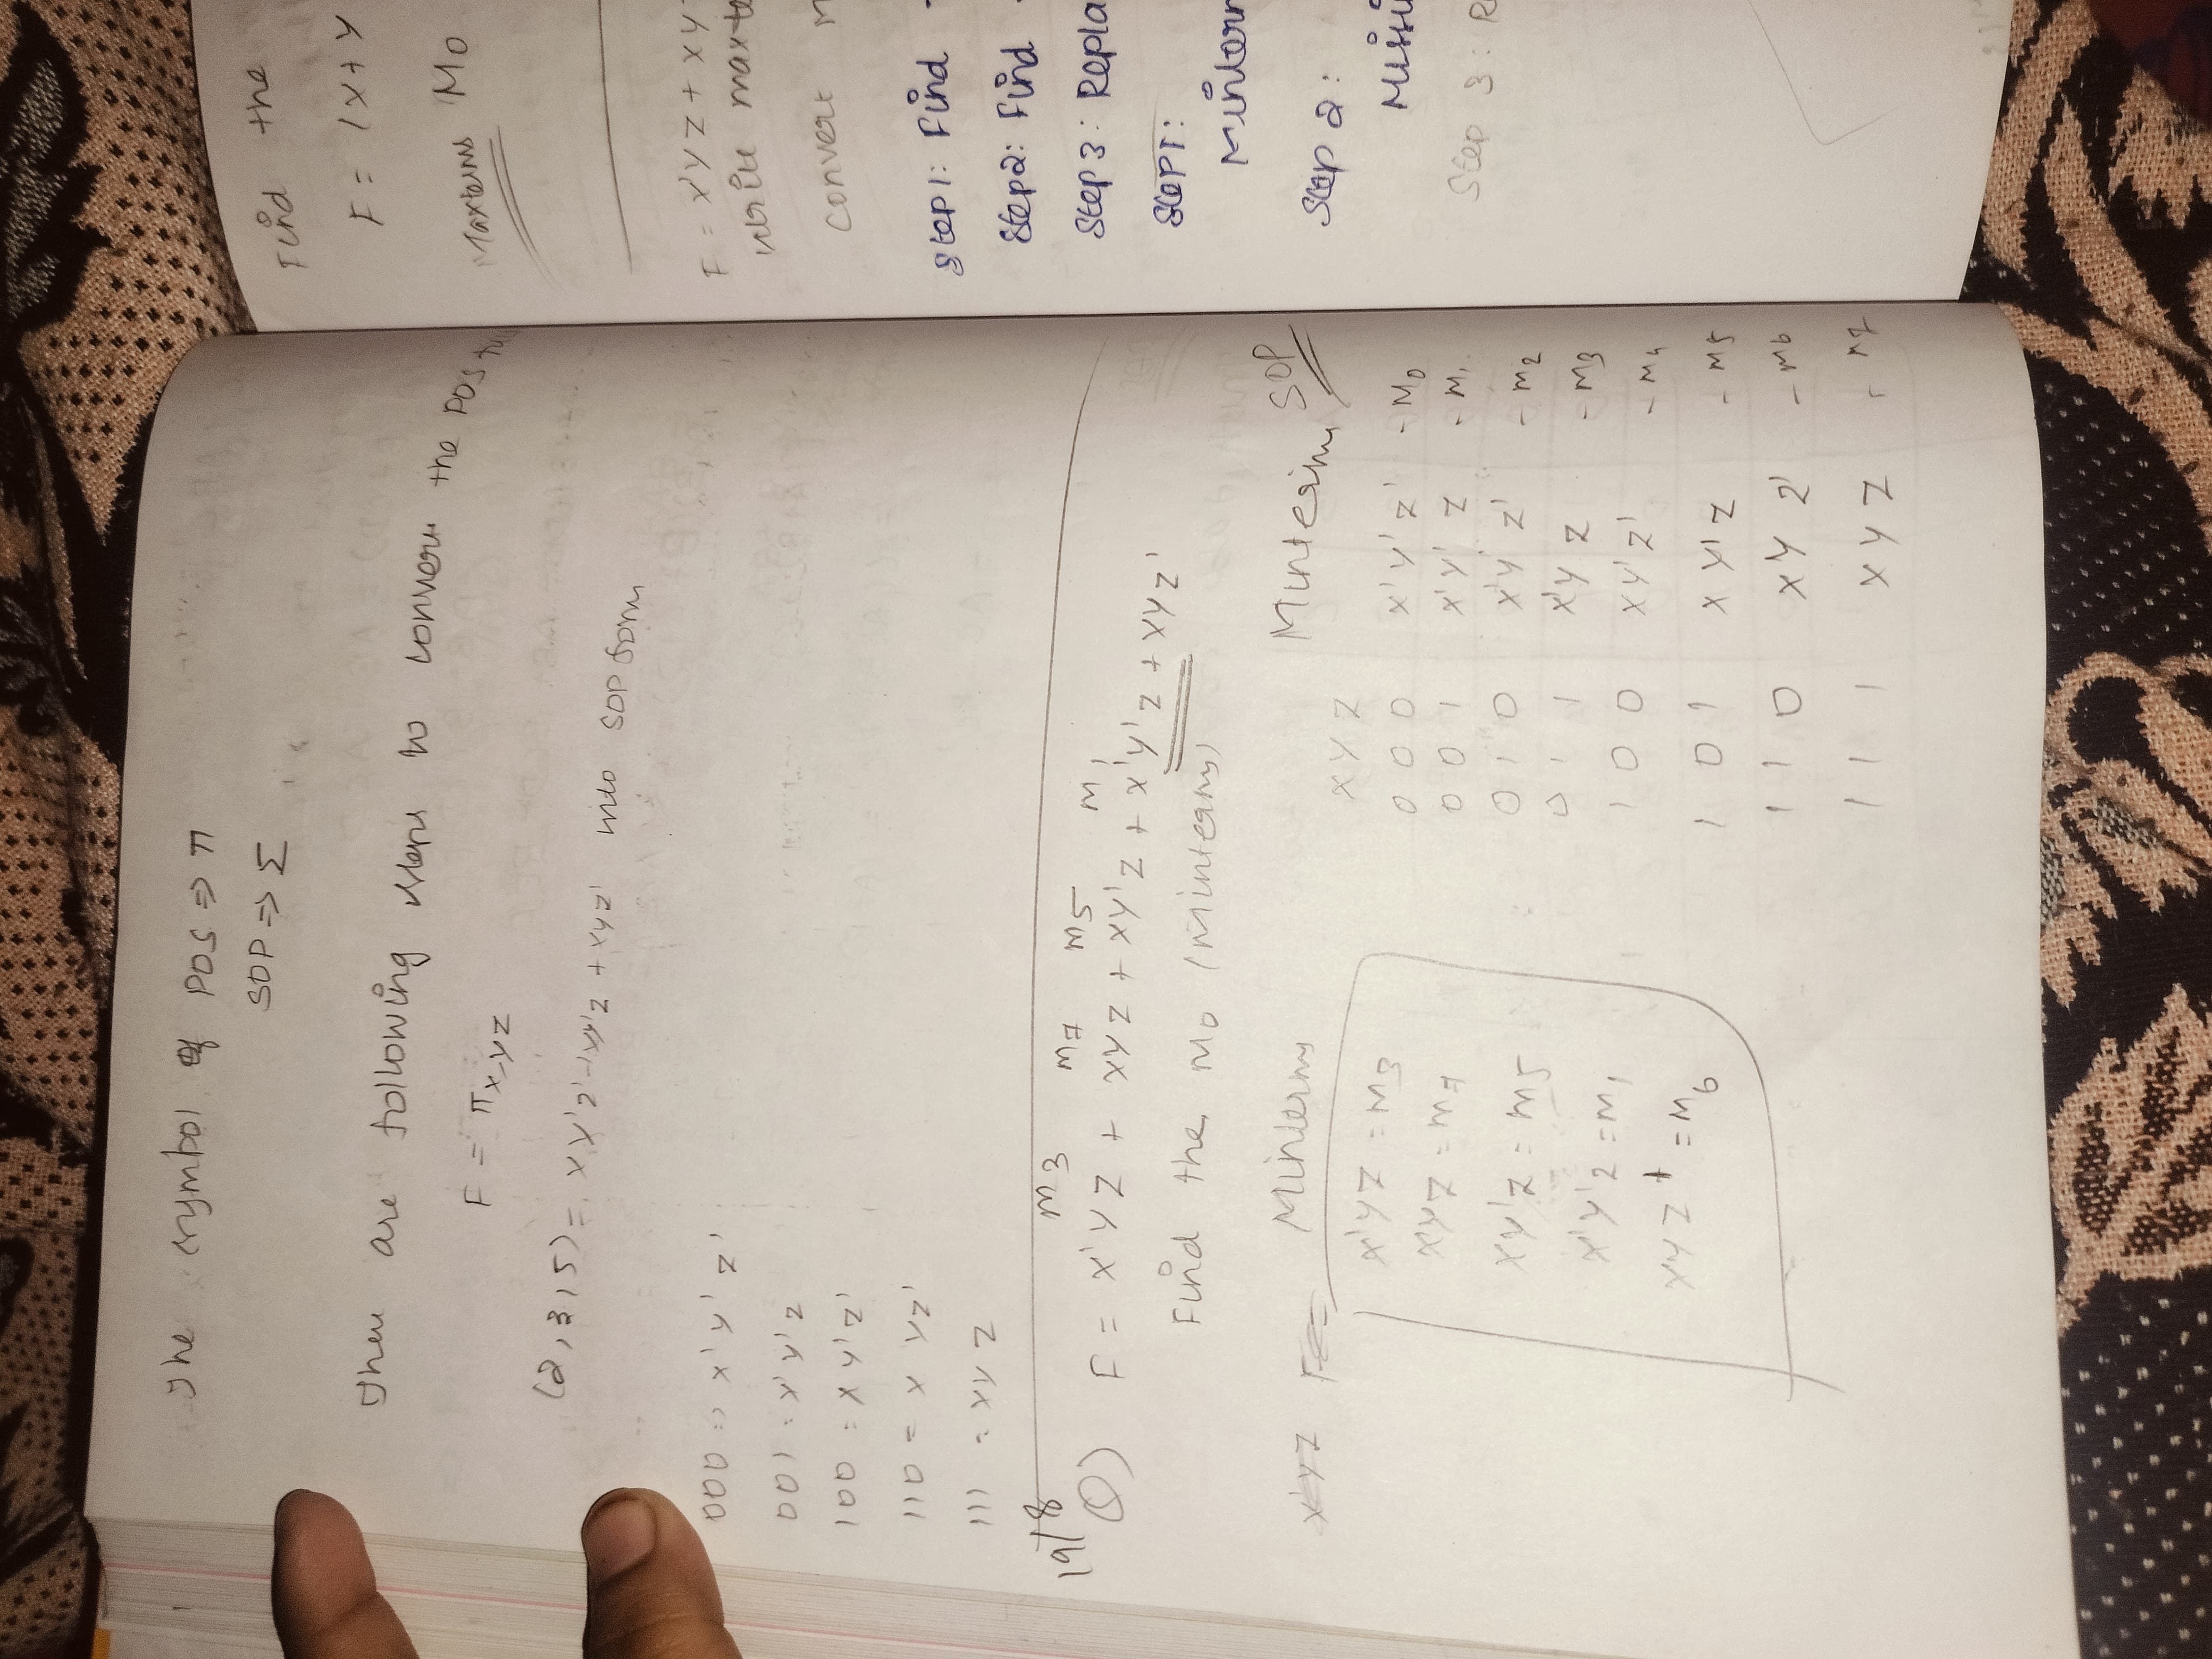 The symbol of POS => π
SOP => Σ
There are following steps to convert the POS
F = π x,y,z
(2,3,5) = x'y'z' + x'y'z + xyz' into SOP form
000 => x'y'z'
001 = x'y'z
100 = xy'z'
110 = xyz'
111 = xyz
19/8
m3 m7 m5 m1
Q) F = x'yz + xyz + xy'z + x'y'z + xyz'
Find the mo (minterms)
Minterms
x'yz = m3
xyz = m7
xy'z = m5
x'y'z = m1
xyz' = m6
x y z Minterms SOP
0 0 0 x'y'z' - m0
0 0 1 x'y'z - m1
0 1 0 x'yz' - m2
0 1 1 x'yz - m3
1 0 0 xy'z' - m4
1 0 1 xy'z - m5
1 1 0 xyz' - m6
1 1 1 xyz - m7
Find the
F = (x+y
Maxterms Mo
F = x'yz + xy
write maxte
convert m
Step 1: Find
Step 2: Find
Step 3: Repla
Step 1:
Minterm
Step 2:
Missi
Step 3: R